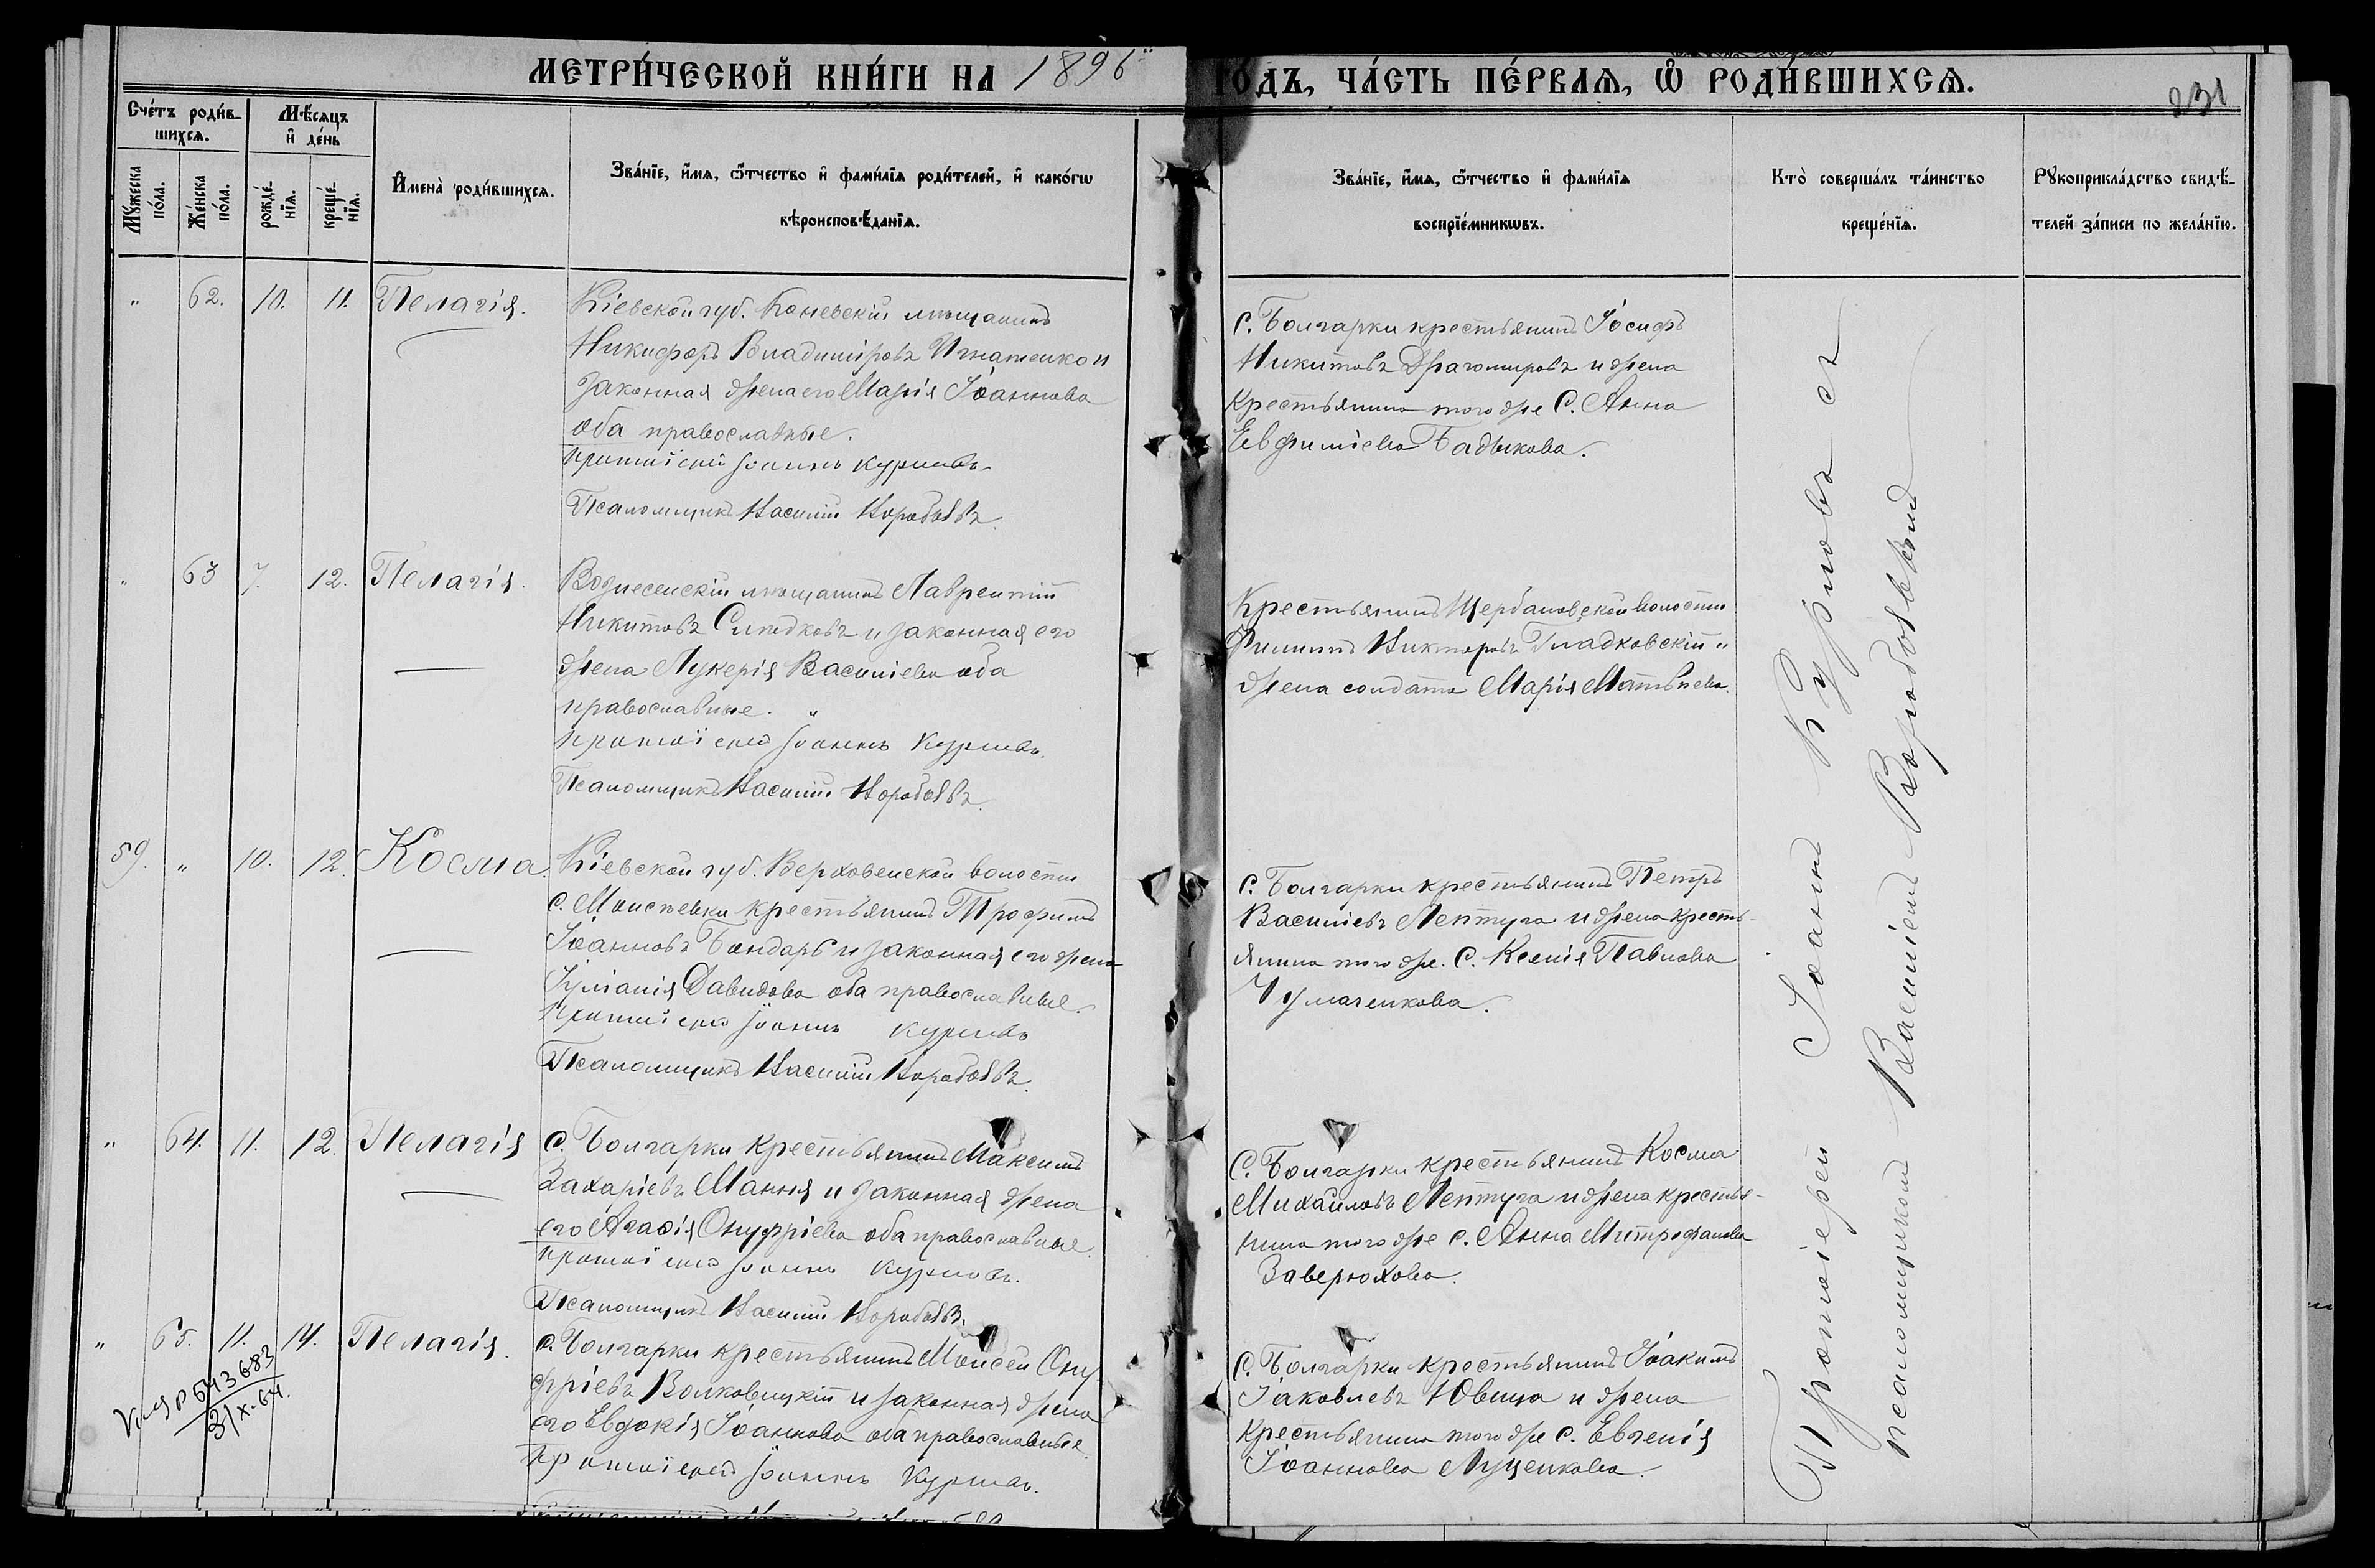 МЕТРИ́ЧЕСКОЙ КНИ́ГИ НА 1896
ГО́ДЪ, ЧА́СТЬ ПЕ́РВАѦ, Ѡ҆ РОДИ́ВШИХСѦ.
231
Счéтъ роди́в-
шихсѧ.
Мѣ́сѧцъ
и҆ дéнь
Мꙋ́жеска
по́ла.
Жéнска
по́ла.
рождé-
нїѧ.
крещé-
нїѧ.
И҆мена̀ роди́вшихсѧ.
Зва́нїе, и҆́мѧ, ѻ҆́тчество и҆ фами́лїѧ роди́телей, и҆ како́гѡ
вѣроисповѣ́данїѧ.
Зва́нїе, и҆́мѧ, ѻ҆́тчество и҆ фами́лїѧ
воспрїе́мникѡвъ.
Кто̀ соверша́лъ та́инство
крещéнїѧ.
Рꙋкоприкла́дство свидѣ́-
телей за́писи по жела́нїю.
" 62. 10. 11. Пелагія.
Кіевской губ. Каневскій мѣщанинъ
Никифоръ Владиміровъ Игнатенко и
законная жена его Марія Іоаннова
оба православные.
Протоіерей Іоаннъ Курловъ.
Псаломщикъ Василій Воробьевъ.
С. Болгарки крестьянинъ Іосифъ
Никитовъ Драгомировъ и жена
крестьянина того же С. Анна
Евфиміева Бадыкова.
" 63 7. 12. Пелагія.
Вознесенскій мѣщанинъ Лаврентій
Никитовъ Слѣдковъ и законная его
жена Лукерія Василіева оба
православные. "
Протоіерей Іоаннъ Курловъ.
Псаломщикъ Василій Воробьевъ.
Крестьянинъ Щербановской волости
Филиппъ Викторовъ Гладковскій и
жена солдата Марія Матѳѣева.
59. " 10. 12. Косма.
Кіевской губ. Верховенской волости
с. Моисѣевки крестьянинъ Трофимъ
Іоанновъ Бондарь и законная его жена
Іуліанія Давидова оба православные.
Протоіерей Іоаннъ Курловъ
Псаломщикъ Василій Воробьевъ.
С. Болгарки крестьянинъ Петръ
Василіевъ Лептуга и жена кресть-
янина того же С. Ксенія Павлова
Чумаченкова.
" 64. 11. 12. Пелагія
С. Болгарки крестьянинъ Максимъ
Захаріевъ Мання и законная жена
его Агаѳія Онуфріева оба православные.
Протоіерей Іоаннъ Курловъ.
Псаломщикъ Василій Воробьевъ.
С. Болгарки крестьянинъ Косма
Михайловъ Лептуга и жена крестья-
нина того же с. Анна Митрофанова
Заверюхова.
" 65. 11. 14. Пелагія.
С. Болгарки крестьянинъ Моисей Ону-
фріевъ Волковицкій и законная жена
его Евдокія Іоаннова оба православные
Протоіерей Іоаннъ Курловъ.
643683
31/X-64.
С. Болгарки крестьянинъ Іоакимъ
Іаковлевъ Ювица и жена
крестьянина того же с. Евгенія
Іоаннова Луценкова.
Протоіерей Іоаннъ Курловъ съ
псаломщикомъ Василіемъ Воробьевымъ